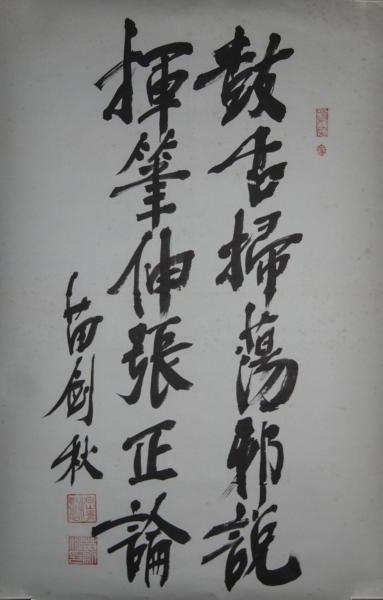 鼓舌掃蕩邪說
揮筆伸張正論
苗劍秋